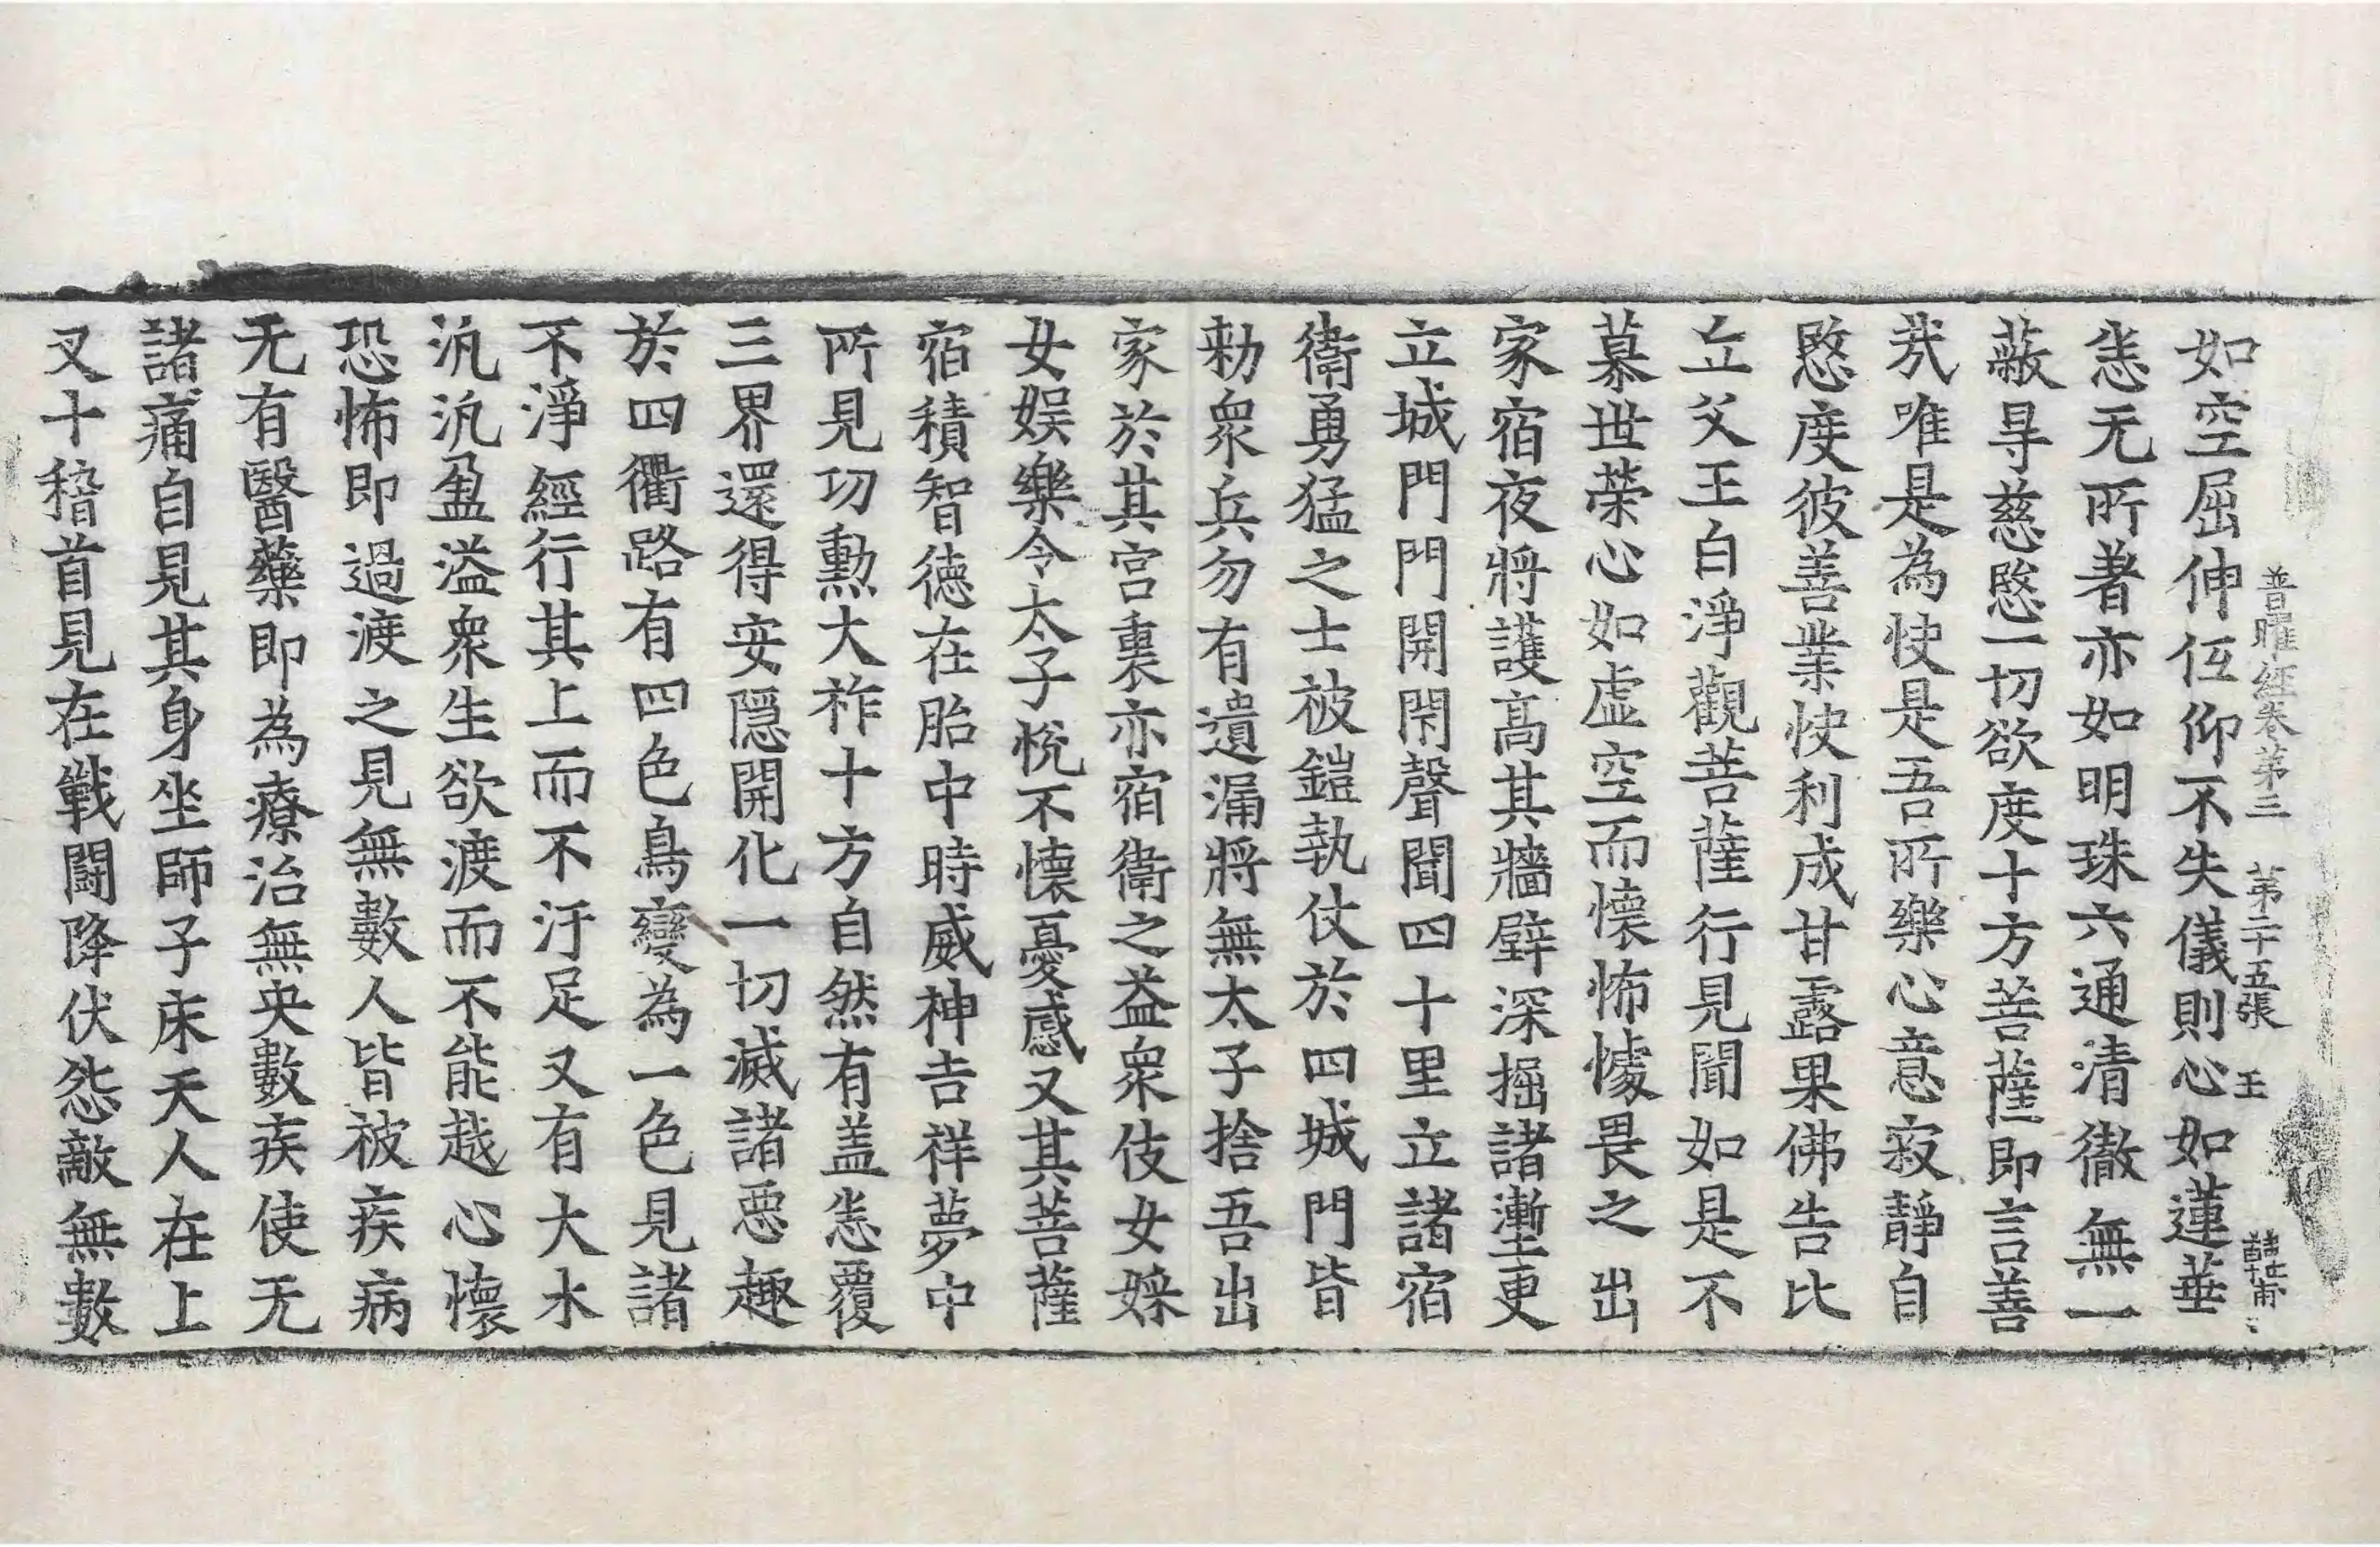 普曜經卷第三　第二十五張　王
如空屈伸低仰不失儀則心如蓮華
恙无所著亦如明珠六通清徹無一
蔽㝵慈愍一切欲度十方菩薩即言善
㦲唯是為快是吾所樂心意寂靜自
愍度彼善業快利成甘露果佛告比
丘父王白淨觀菩薩行見聞如是不
慕世榮心如虛空而懷怖懅畏之出
家宿夜將護高其牆壁深掘諸壍更
立城門門開閇聲聞四十里立諸宿
衛勇猛之士被鎧執仗於四城門皆
勑衆兵勿有遺漏將無太子捨吾出
家於其宮裏亦宿衛之益衆伎女婇
女娛樂令太子悅不懷憂慼又其菩薩
宿積智德在胎中時威神吉祥夢中
所見功勳大祚十方自然有盖恙覆
三界還得安隱開化一切滅諸惡趣
於四衢路有四色鳥變為一色見諸
不淨經行其上而不汙足又有大水
汎汎盈溢衆生欲渡而不能越心懷
恐怖即過渡之見無數人皆被疾病
无有醫藥即為療治無央數疾使无
諸痛自見其身坐師子床天人在上
叉十稽首見在戰鬪降伏怨敵無數